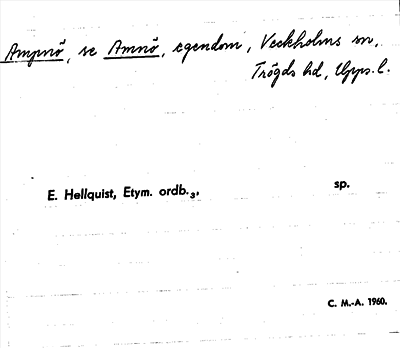 Ampnö, se Amnö, egendom, Veckholms sn,
Trögds hd, Upps. l.
E. Hellquist, Etym. ordb.3, sp.
C. M.-A. 1960.